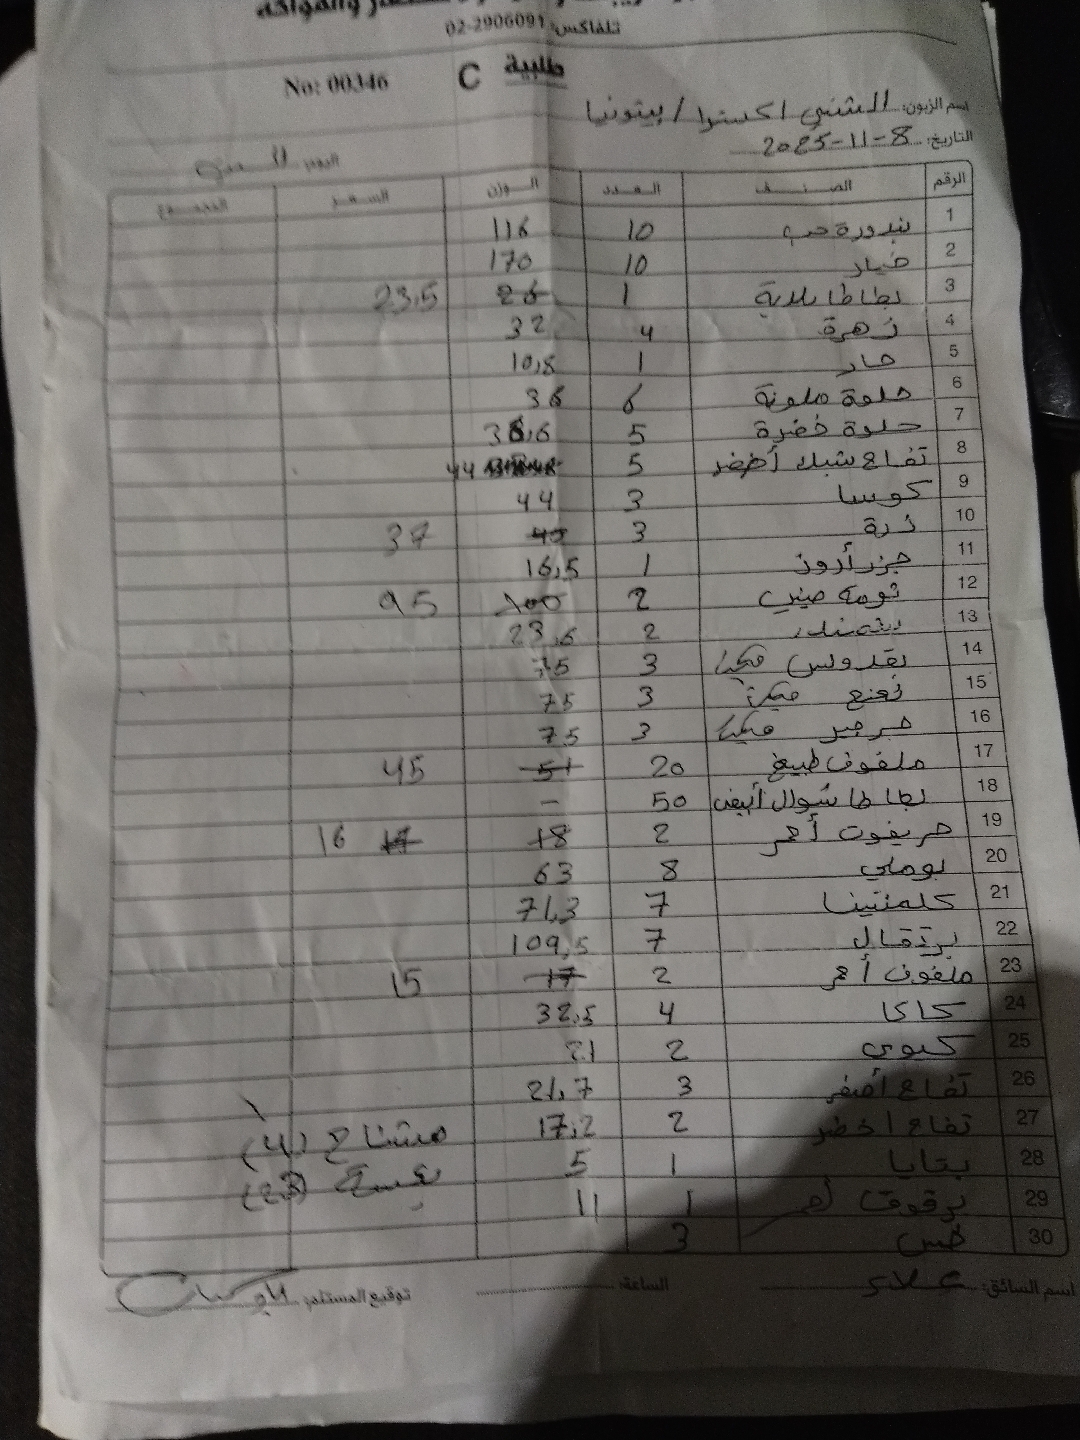 تلفاكس: 02-2906091
طلبية C No: 00346
اسم الزبون: الشني اكسترا / بيتونيا
التاريخ: 8-11-2025
اليوم
الرقم الصنف العدد الوزن السعر المجموع
1 بندورة حب 10 116
2 خيار 10 170
3 بطاطا بلدية 1 26 23.5
4 زهرة 4 32
5 حار 1 10,8
6 حلوة ملونة 6 36
7 حلوة خضرة 5 38,6
8 تفاح شبك أخضر 5 44
9 كوسا 3 44
10 ذرة 3 40 37
11 جزر أردن 1 16,5
12 ثومة صيني 2 100 95
13 2 23,6
14 بقدونس 3 75
15 نعنع 3 75
16 جرجير 3 75
17 ملفوف طبيخ 20 51 45
18 بطاطا شوال أبيض 50 -
19 جريفوت أحمر 2 18 17 16
20 بوملي 8 63
21 كلمنتينا 7 71,3
22 برتقال 7 109,5
23 ملفوف أحمر 2 17 15
24 كاكا 4 32,5
25 كيوي 2 21
26 تفاح أصفر 3 21,7
27 تفاح اخضر 2 17,2 مشتاح (4)
28 بتايا 1 5 (23)
29 برقوق أحمر 1 11
30 خس 3
اسم السائق: علاء الساعة: توقيع المستلم: